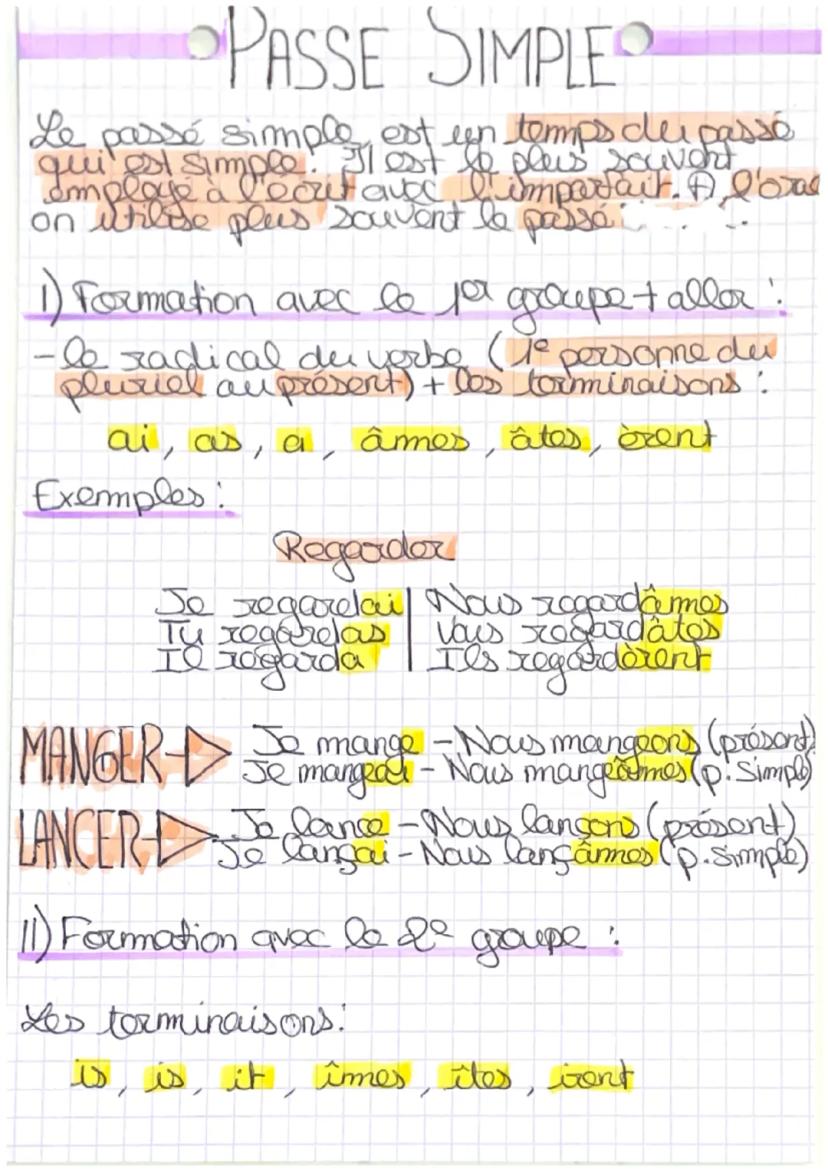 PASSE SIMPLE
Le passé simple est un temps du passé
qui est simple. Il est le plus souvent
employé à l'écrit avec l'imparfait. A l'oral
on utilise plus souvent le passé
I) Formation avec le 1er groupe + aller :
- le radical du verbe (1e personne du
pluriel au présent) + les terminaisons :
ai, as, a, âmes, âtes, èrent
Exemples :
Regarder
Je regardai | Nous regardâmes
Tu regardas | Vous regardâtes
Il regarda | Ils regardèrent
MANGER Je mange - Nous mangeons (présent)
Je mangeai - Nous mangeâmes (p. Simple)
LANCER Je lance - Nous lançons (présent)
Je lançai - Nous lançâmes (p. Simple)
II) Formation avec le 2e groupe :
Les terminaisons :
is, is, it, îmes, îtes, irent